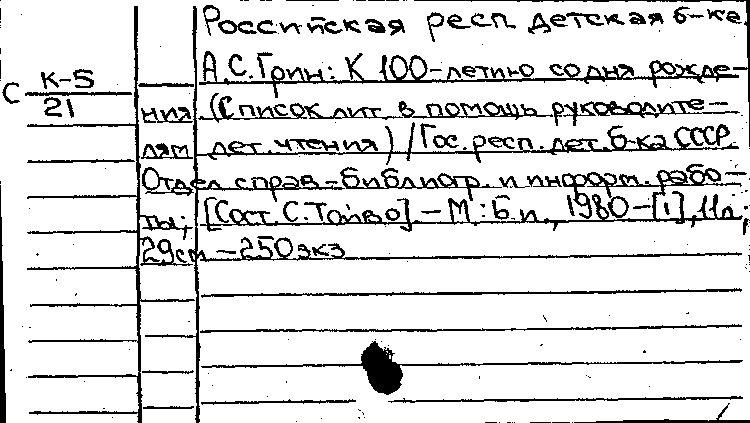 Российская респ. детская б-ка.
А.С.Грин: К 100-летию со дня рожде-
С К-5
21
ния. (Список лит. в помощь руководите-
лям дет. чтения) / Гос. респ. дет. б-ка СССР.
Отдел справ.-библиогр. и информ. рабо-
ты; [Сост. С. Тойво]. – М.: Б.и., 1980 – [1], 11 л.;
29 см – 250 экз